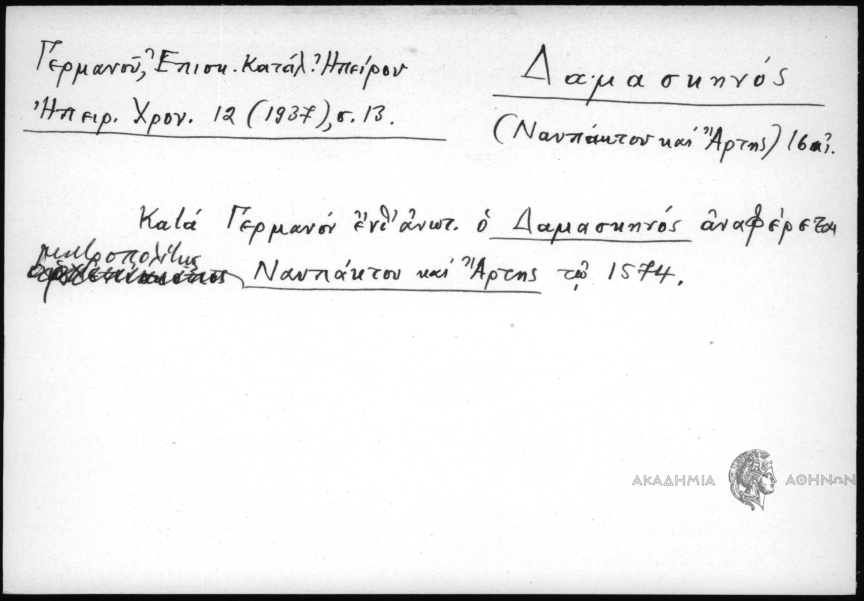 Γερμανοῦ, Ἐπισκ. Κατάλ. Ἠπείρου
Ἠπειρ. Χρον. 12 (1937), σ. 13.
Δαμασκηνός
(Ναυπάκτου καὶ Ἄρτης) 16 αἰ.
Κατά Γερμανόν ἔνθ' ἀνωτ. ὁ Δαμασκηνός ἀναφέρεται
μητροπολίτης
Ναυπάκτου καὶ Ἄρτης τῷ 1574.
ΑΚΑΔΗΜΙΑ ΑΘΗΝΩΝ